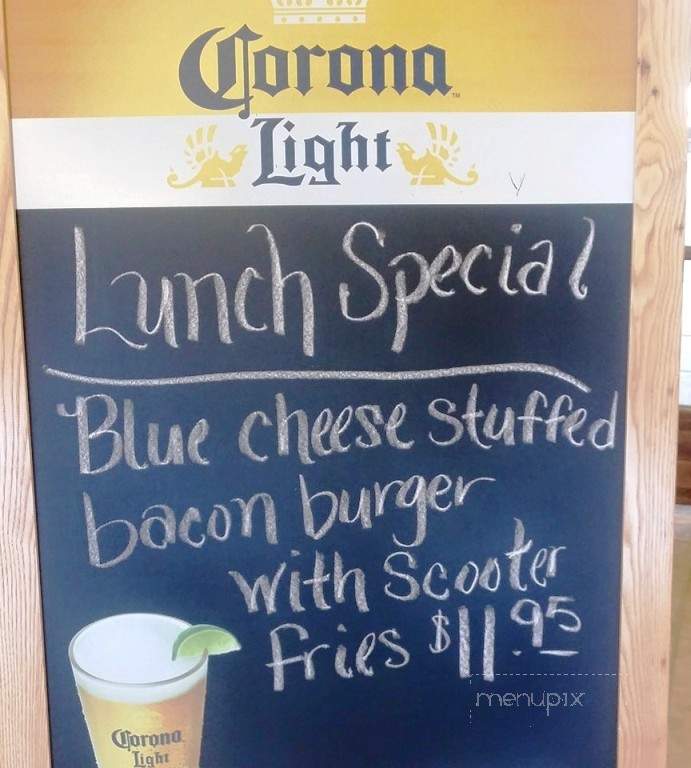 Corona
Light
Lunch Special
Blue cheese stuffed
bacon burger
with Scooter
fries $11.95
Corona
Light
menupix